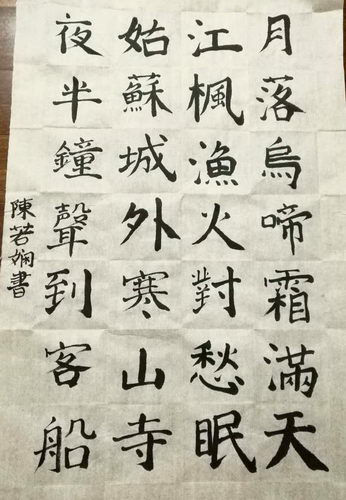 月落烏啼霜滿天
江楓漁火對愁眠
姑蘇城外寒山寺
夜半鐘聲到客船
陳若嫻書